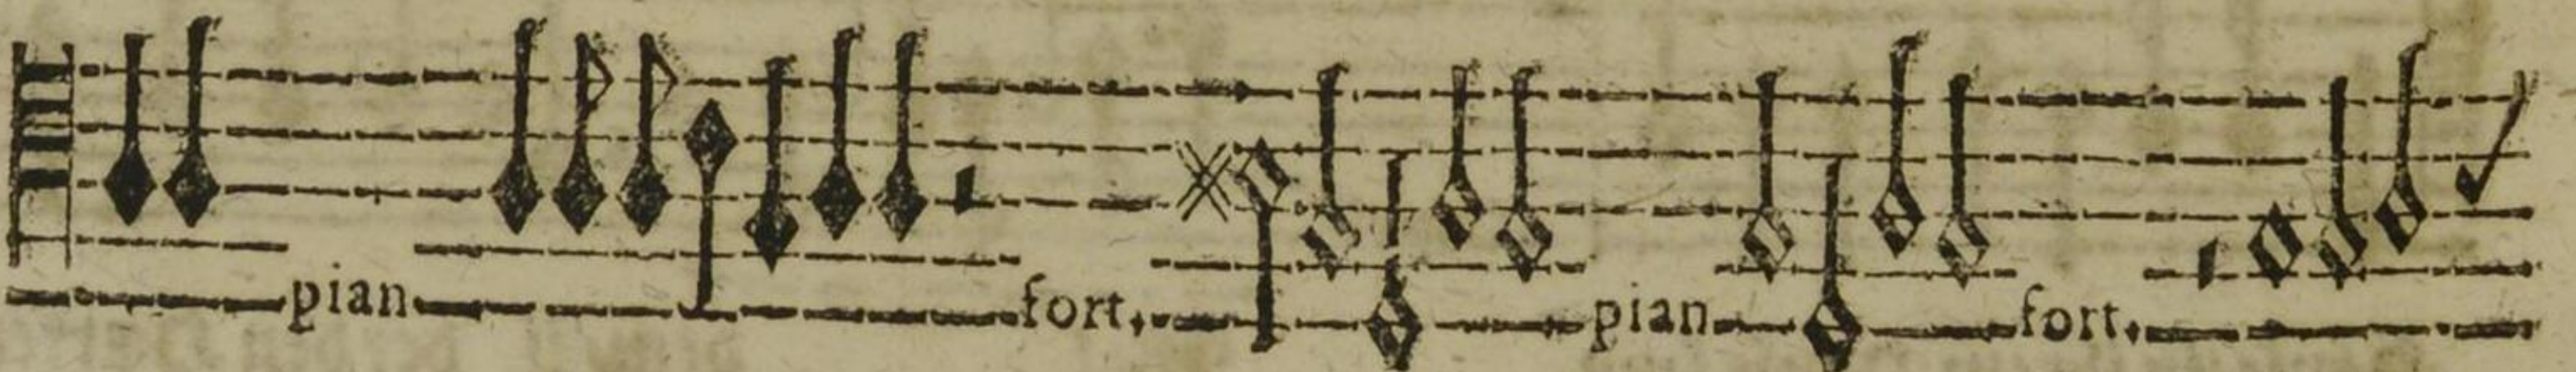 pian fort. pian fort.